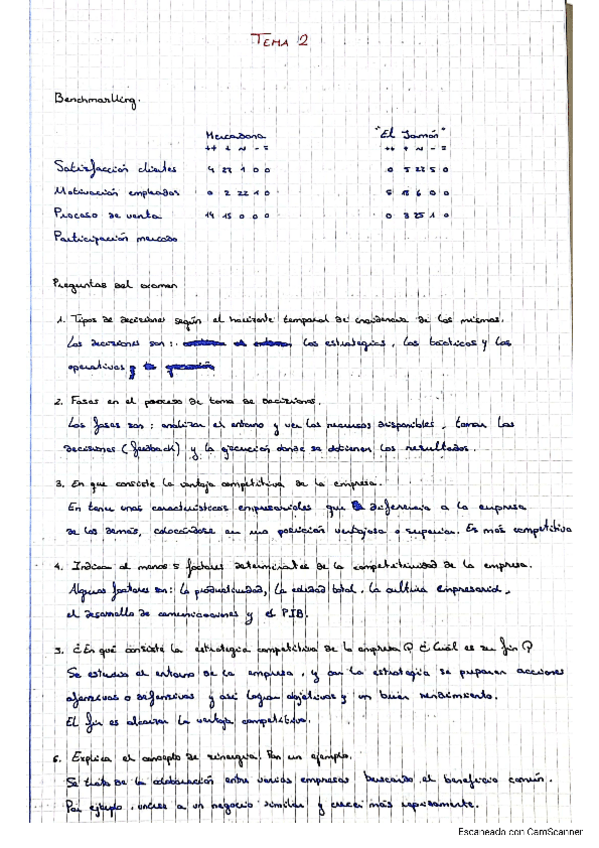 TEMA 2
Benchmarking.
Mercadona "El Jamón"
++ + ~ - = ++ + ~ - =
Satisfacción clientes 4 22 1 0 0 0 5 22 5 0
Motivación empleados 0 2 22 1 0 5 15 6 0 0
Proceso de venta 14 15 0 0 0 0 3 25 1 0
Participación mercado
Preguntas del examen
1. Tipos de decisiones según el horizonte temporal de incidencia de las mismas.
Las decisiones son: las estrategias, las tácticas y las
operativas
2. Fases en el proceso de toma de decisiones.
Las fases son: analizar el entorno y ver los recursos disponibles, tomar las
decisiones (feedback) y la ejecución donde se obtienen los resultados.
3. En que consiste la ventaja competitiva de la empresa.
En tener unas características empresariales que diferencia a la empresa
de las demás, colocándose en una posición ventajosa o superior. Es más competitiva
4. Indica al menos 5 factores determinantes de la competitividad de la empresa.
Algunos factores son: la productividad, la calidad total, la cultura empresarial,
el desarrollo de comunicaciones y el PIB.
5. ¿En qué consiste la estrategia competitiva de la empresa? ¿Cuál es su fin?
Se estudia el entorno de la empresa, y con la estrategia se preparan acciones
ofensivas o defensivas y así lograr objetivos y un buen rendimiento.
El fin es alcanzar la ventaja competitiva.
6. Explica el concepto de sinergia. Pon un ejemplo.
Se trata de la colaboración entre varias empresas buscando el beneficio común.
Por ejemplo, unirse a un negocio similar y crecer más rápidamente.
Escaneado con CamScanner